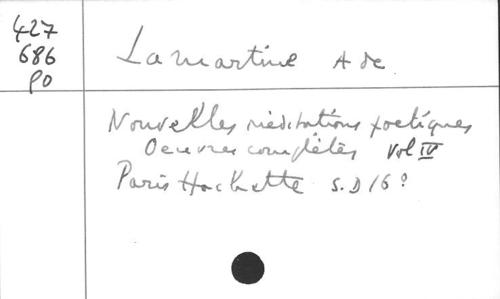 427
686
po
Lamartine A de
Nouvelles méditations poetiques
Oeuvres complètes Vol IV
Paris Hachette S.D 16°